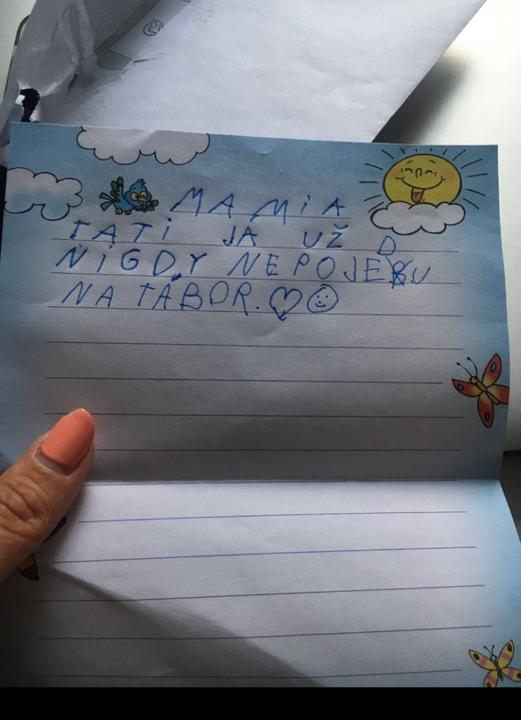 MAMi A
TATi JA UŽ
NiGDY NEPOJEDU
NA TÁBOR.